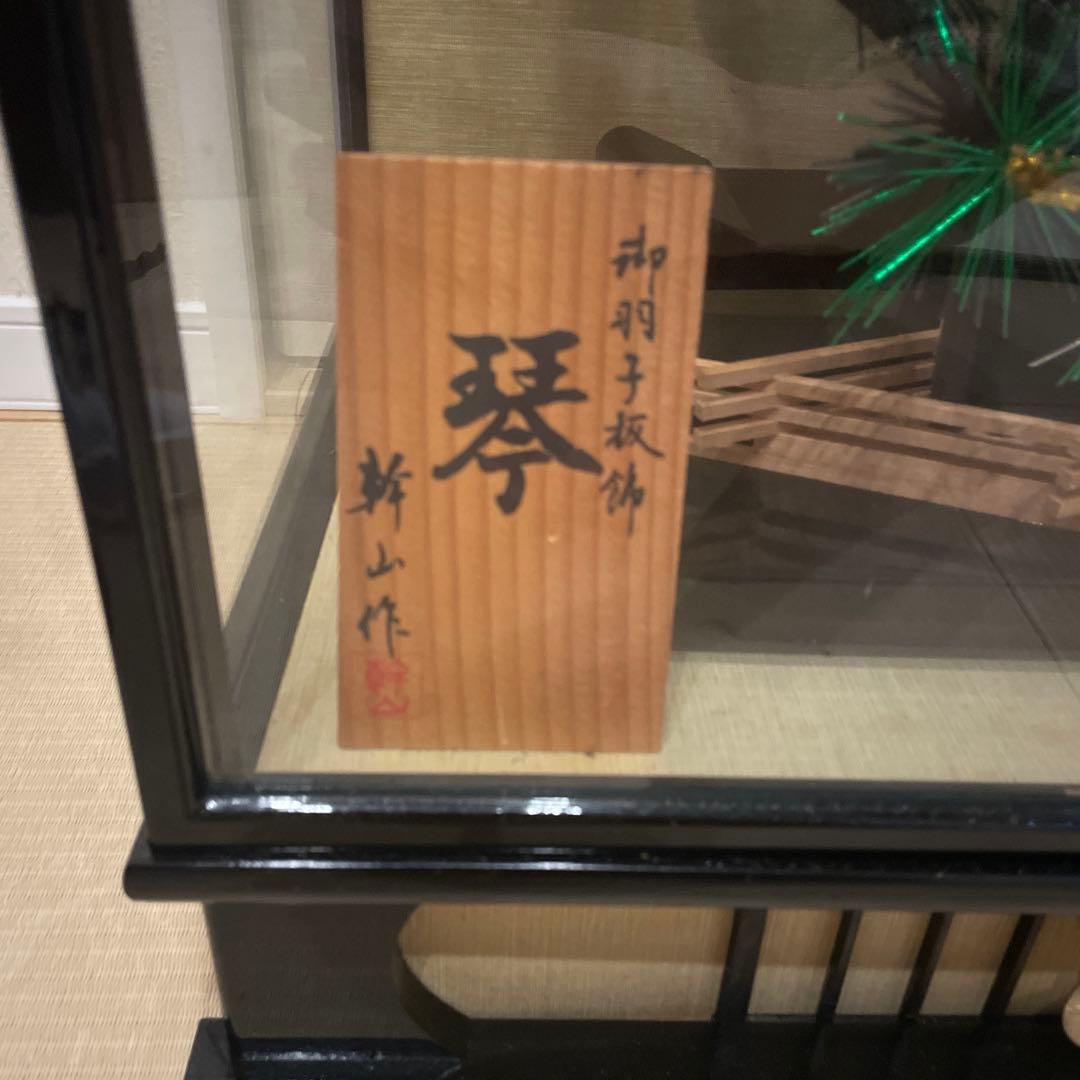 御羽子板飾
琴
幹山作
幹山